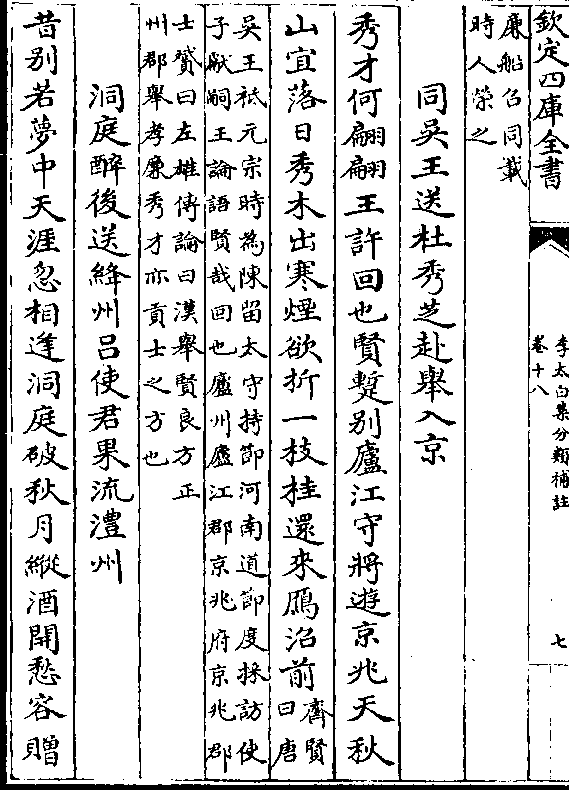 欽定四庫全書
李太白集分類補註
卷十八
七
廉船召同載
時人榮之
同吳王送杜秀芝赴舉入京
秀才何翩翩王許回也賢蹔別廬江守將遊京兆天秋
山宜落日秀木出寒煙欲折一枝桂還來鴈沼前
齊賢
曰唐
吳王祇元宗時為陳留太守持節河南道節度採訪使
子巘嗣王論語賢哉回也廬州廬江郡京兆府京兆郡
士贇曰左雄傳論曰漢舉賢良方正
州郡舉孝廉秀才亦貢士之方也
洞庭醉後送絳州呂使君果流澧州
昔别若夢中天涯忽相逢洞庭破秋月縱酒開愁容贈